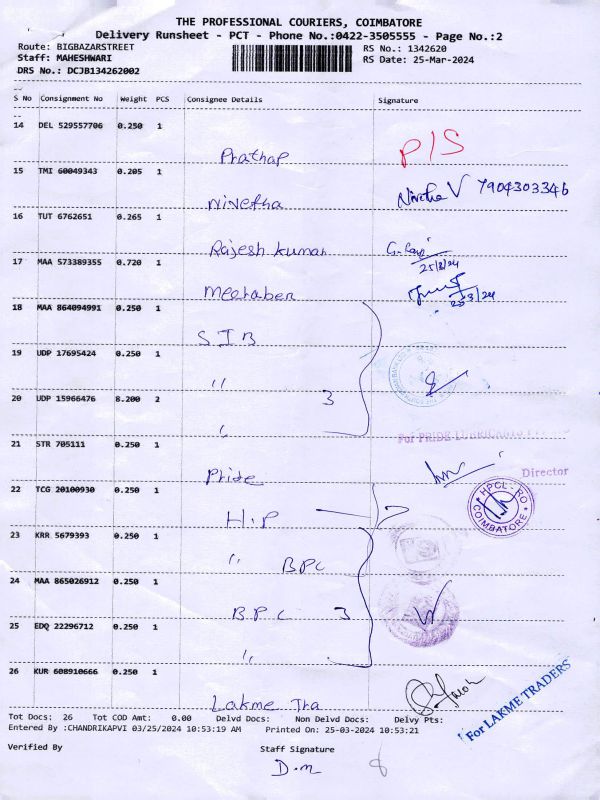 THE PROFESSIONAL COURIERS, COIMBATORE
Delivery Runsheet - PCT - Phone No.:0422-3505555 - Page No.:2
Route: BIGBAZARSTREET
RS No.: 1342620
Staff: MAHESHWARI
RS Date: 25-Mar-2024
DRS No.: DCJB134262002
S No Consignment No Weight PCS Consignee Details Signature
14 DEL 529557706 0.250 1
Prathap P/S
15 TMI 60049343 0.205 1
Nivetha Nivetha V 7904303346
16 TUT 6762651 0.265 1
Rajesh kumar 25/3/24
17 MAA 573389355 0.720 1
Meeraben
18 MAA 864094991 0.250 1
SIB
19 UDP 17695424 0.250 1
"
20 UDP 15966476 8.200 2
3
"
For PRIDE LUBRICANTS
21 STR 705111 0.250 1
Pride
Director
22 TCG 20100930 0.250 1
H.P
HPCL-RO
COIMBATORE
23 KRR 5679393 0.250 1
" BPC
24 MAA 865026912 0.250 1
BPC 3
25 EDQ 22296712 0.250 1
"
26 KUR 608910666 0.250 1
Lakme Tra
For LAKME TRADERS
Tot Docs: 26 Tot COD Amt: 0.00 Delvd Docs: Non Delvd Docs: Delvy Pts:
Entered By :CHANDRIKAPVI 03/25/2024 10:53:19 AM Printed On: 25-03-2024 10:53:21
Verified By Staff Signature
D.m